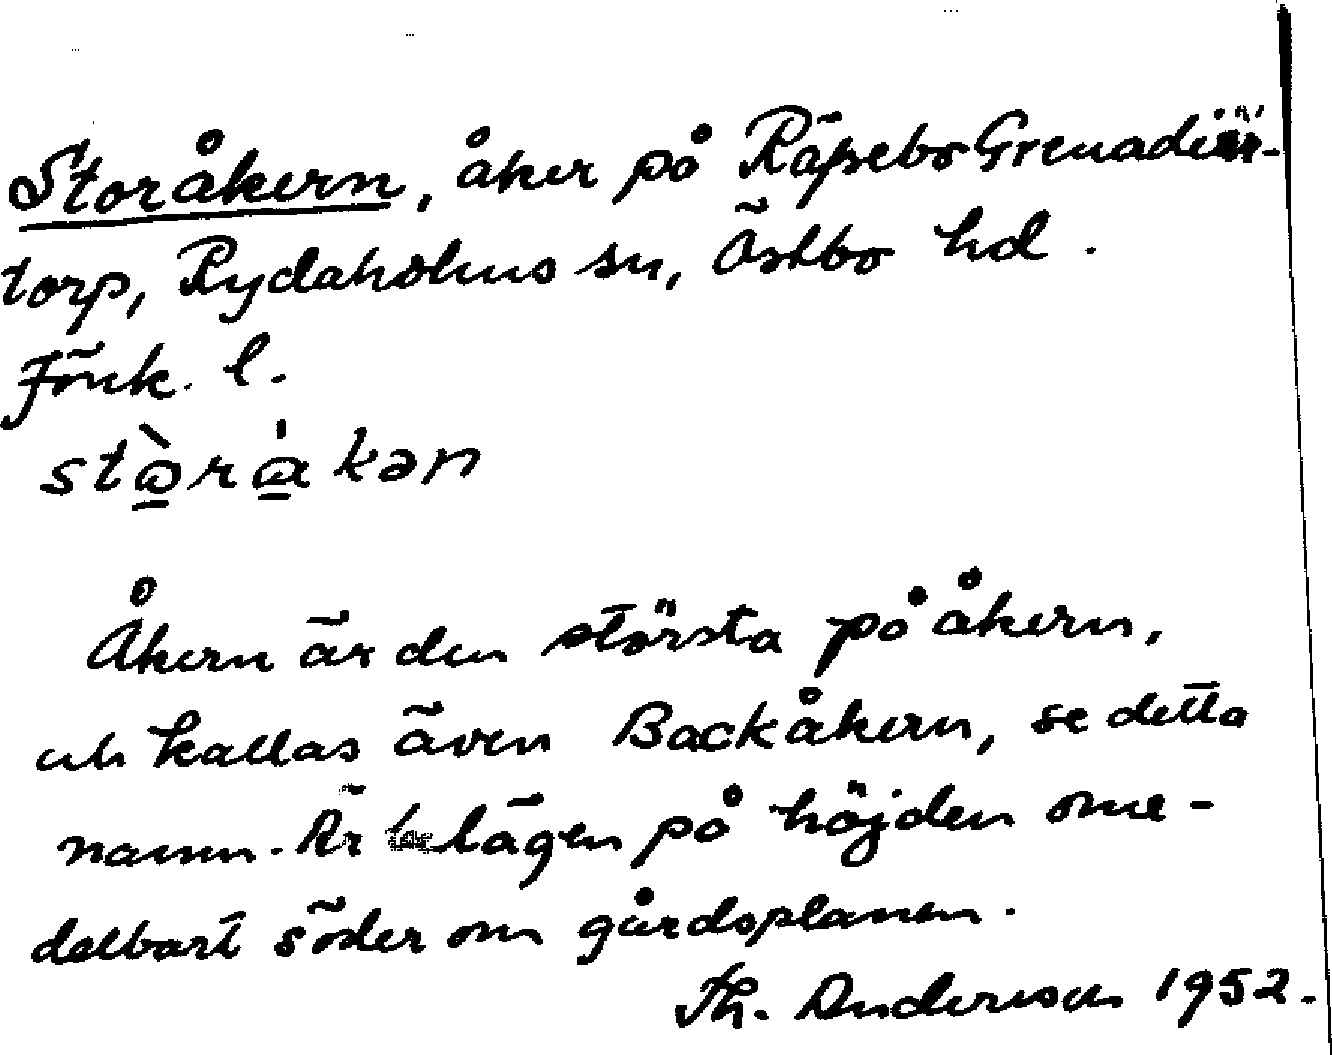 Storåkern, åker på Räpsebo Grenadiär-
torp, Rydaholms sn, Östbo hd.
Jönk. l.
stò̠rà̠kən
Åkern är den största på åkern,
och kallas även Backåkern, se detta
namn. Är belägen på höjden ome-
delbart söder om gårdsplanen.
Th. Anderson 1952.